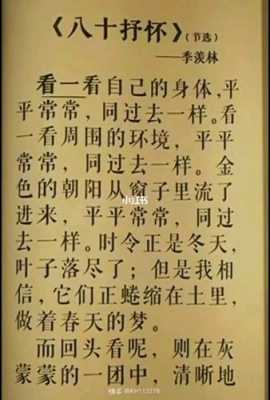 《八十抒怀》(节选)
——季羡林
看一看自己的身体,平
平常常,同过去一样。看
一看周围的环境,平平
常常,同过去一样。金
色的朝阳从窗子里流了
进来,平平常常,同过
去一样。时令正是冬天,
叶子落尽了;但是我相
信,它们正蜷缩在土里,
做着春天的梦。
而回头看呢,则在灰
蒙蒙的一团中,清晰地
小红书